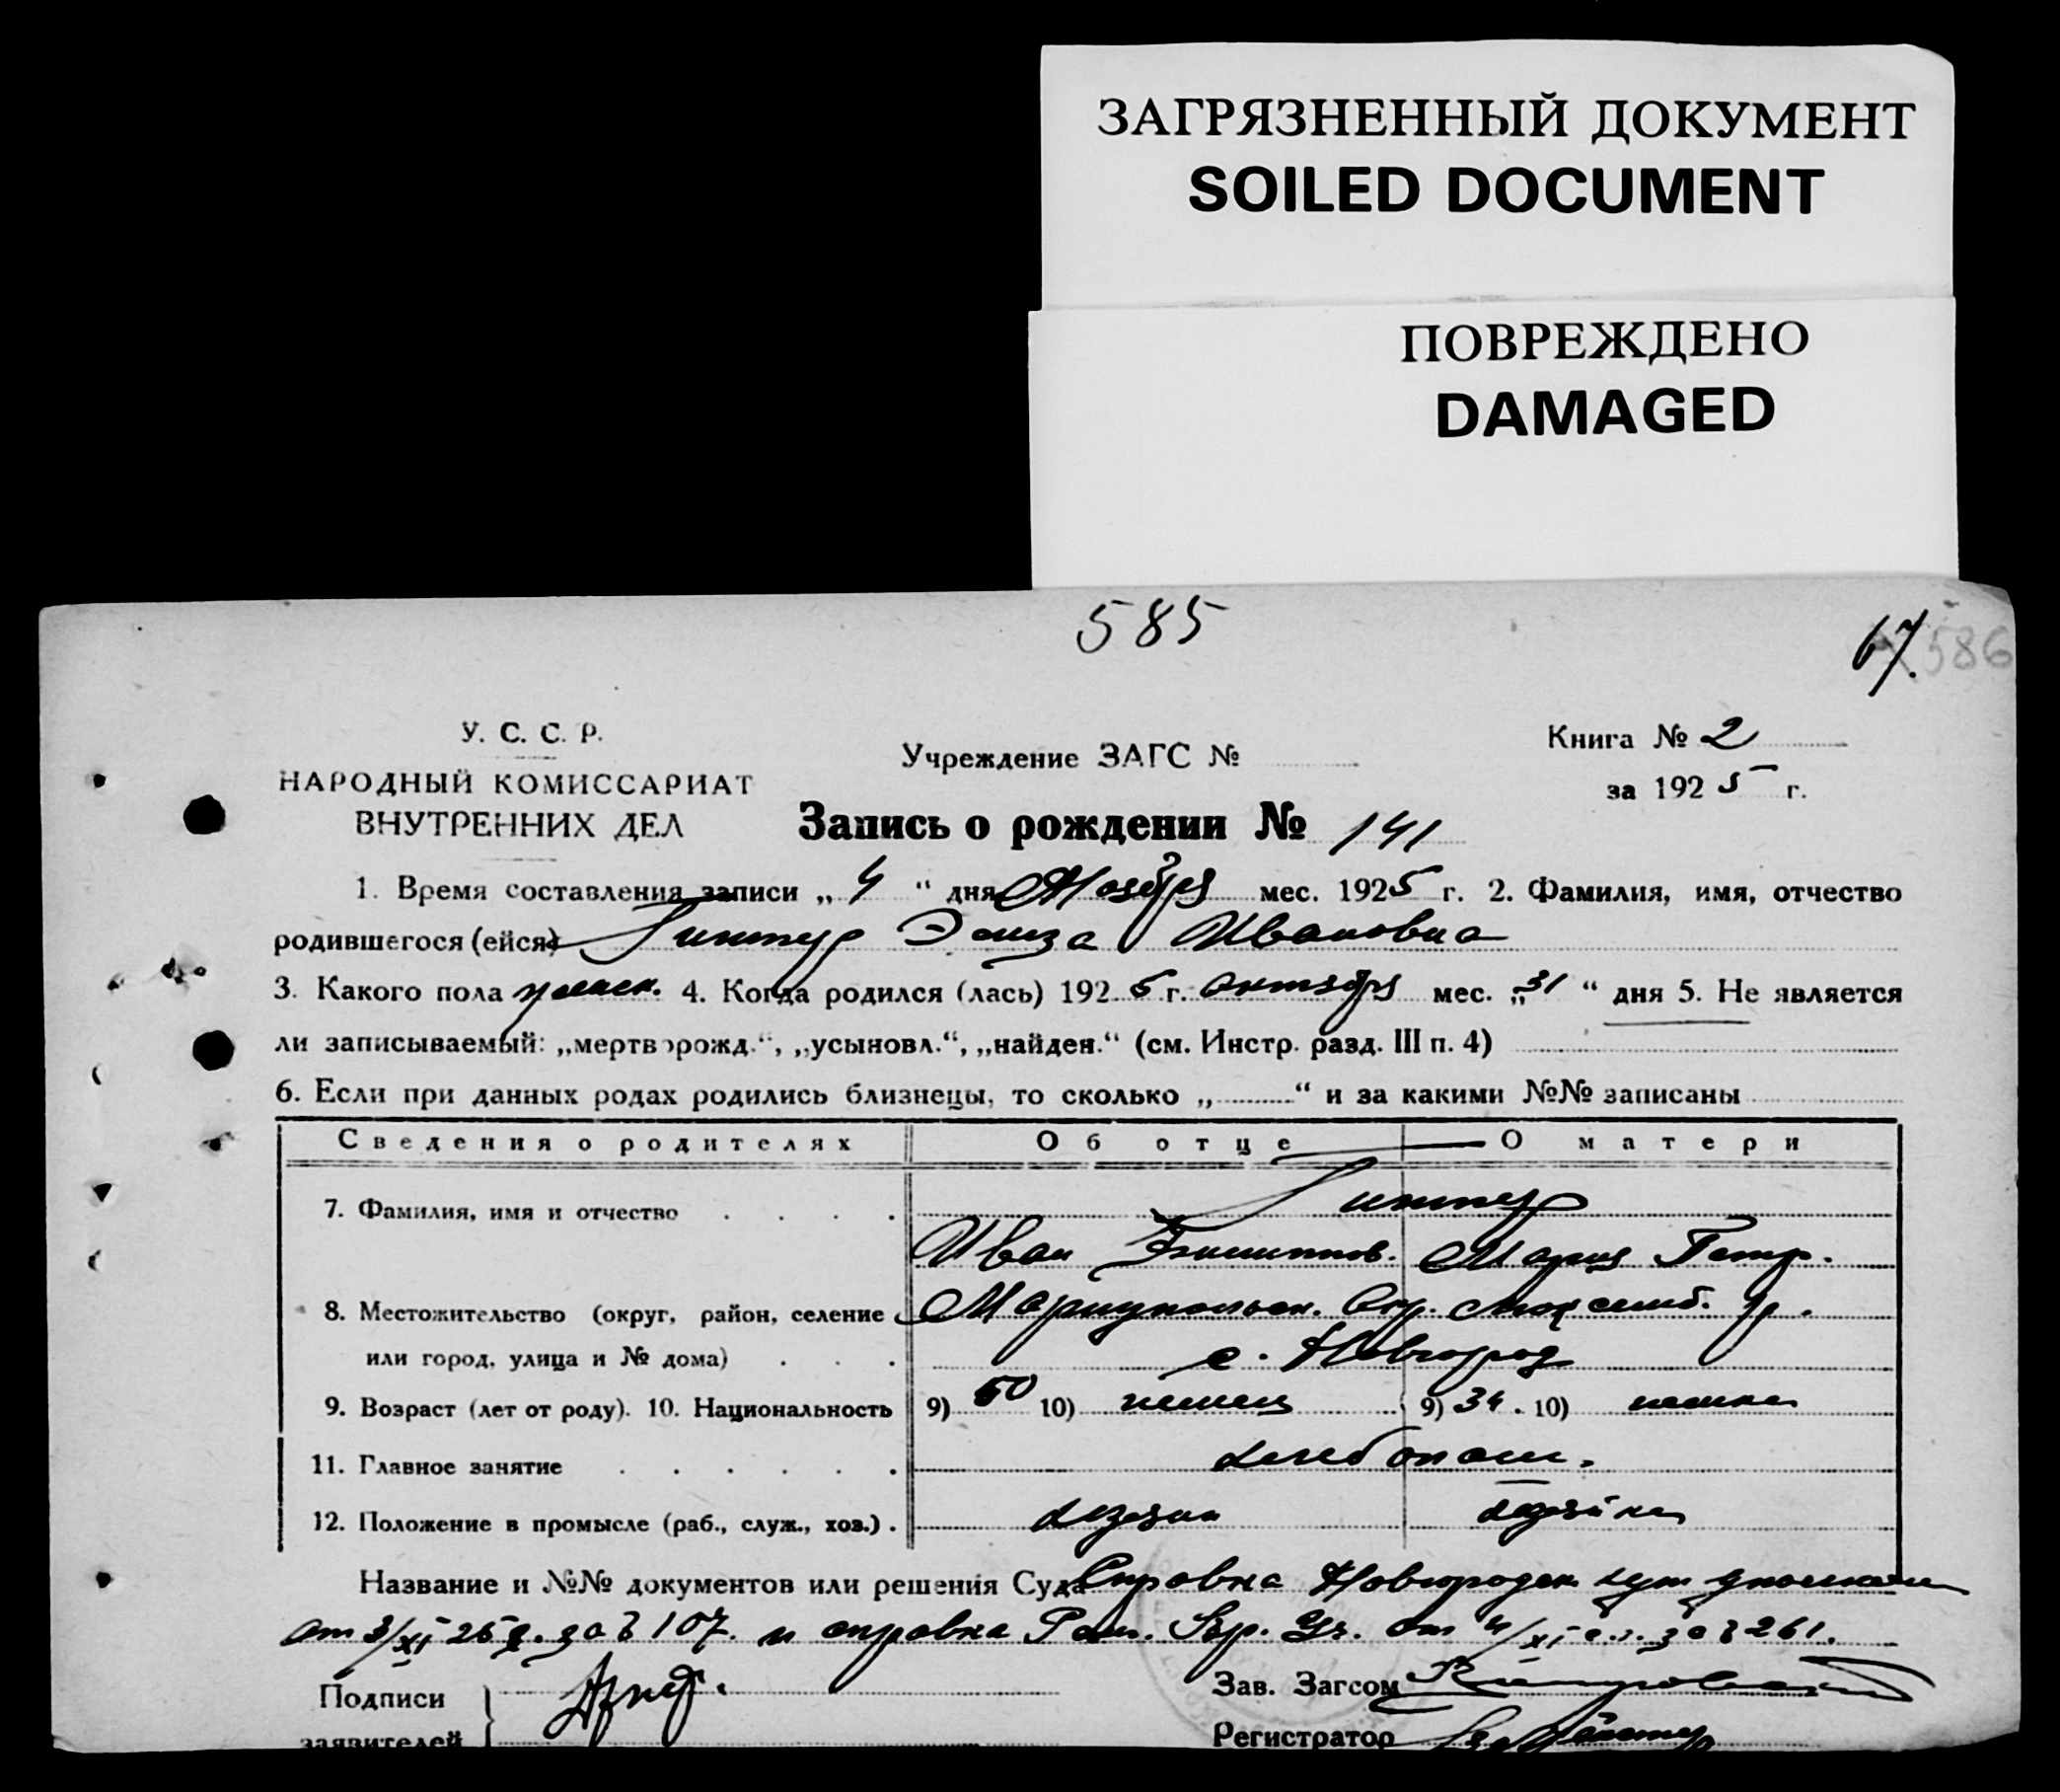 ЗАГРЯЗНЕННЫЙ ДОКУМЕНТ
SOILED DOCUMENT
ПОВРЕЖДЕНО
DAMAGED
585
67. 586
У. С. С. Р.
НАРОДНЫЙ КОМИССАРИАТ
ВНУТРЕННИХ ДЕЛ
Учреждение ЗАГС №
Книга № 2
за 1925 г.
Запись о рождении № 141
1. Время составления записи „ 4 “ дня Ноября мес. 1925 г. 2. Фамилия, имя, отчество
родившегося (ейся) Гинтер Эльза Ивановна
3. Какого пола женск. 4. Когда родился (лась) 1925 г. Октября мес. „31“ дня 5. Не является
ли записываемый: „мертворожд.“, „усыновл.“, „найден.“ (см. Инстр. разд. III п. 4)
6. Если при данных родах родились близнецы, то сколько „ “ и за какими №№ записаны
Сведения о родителях Об отце О матери
7. Фамилия, имя и отчество Гинтер
Иван Филиппов. Мария Петр.
8. Местожительство (округ, район, селение Мариупольск. Окр. Люксемб. р.
или город, улица и № дома) с. Новгород
9. Возраст (лет от роду). 10. Национальность 9) 50 10) немец 9) 34. 10) немка
11. Главное занятие хлебопаш.
12. Положение в промысле (раб., служ., хоз.) хозяин хозяйка
Название и №№ документов или решения Суда Справка Новгородск.
от 3/XI 25 г. за № 107. и справка от 4/XI с.г. за № 261.
Подписи
заявителей
Зав. Загсом
Регистратор